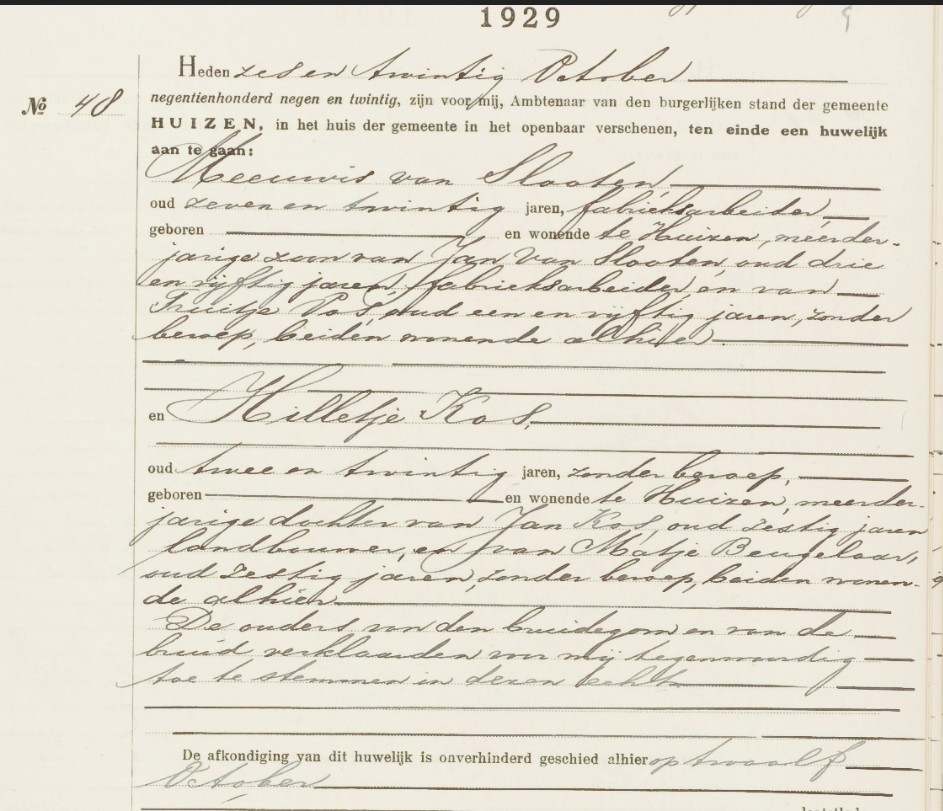 1929
Heden zes en twintig October
No 48
negentienhonderd negen en twintig, zijn voor mij, Ambtenaar van den burgerlijken stand der gemeente
HUIZEN, in het huis der gemeente in het openbaar verschenen, ten einde een huwelijk
aan te gaan:
Meeuwis van Slooten
oud zeven en twintig jaren, fabrieksarbeider
geboren en wonende te Huizen, meerder-
jarige zoon van Jan van Slooten, oud drie
en vijftig jaren, fabrieksarbeider, en van
Truitje Vos, oud een en vijftig jaren, zonder
beroep, beiden wonende alhier
en Hilletje Kos,
oud twee en twintig jaren, zonder beroep,
geboren en wonende te Huizen, meerder-
jarige dochter van Jan Kos, oud zestig jaren
landbouwer, en van Matje Beugelaar,
oud zestig jaren, zonder beroep, beiden wonen-
de alhier
De ouders van den bruidegom en van de
bruid verklaarden voor mij tegenwoordig
toe te stemmen in dezen echt
De afkondiging van dit huwelijk is onverhinderd geschied alhier op twaalf
October